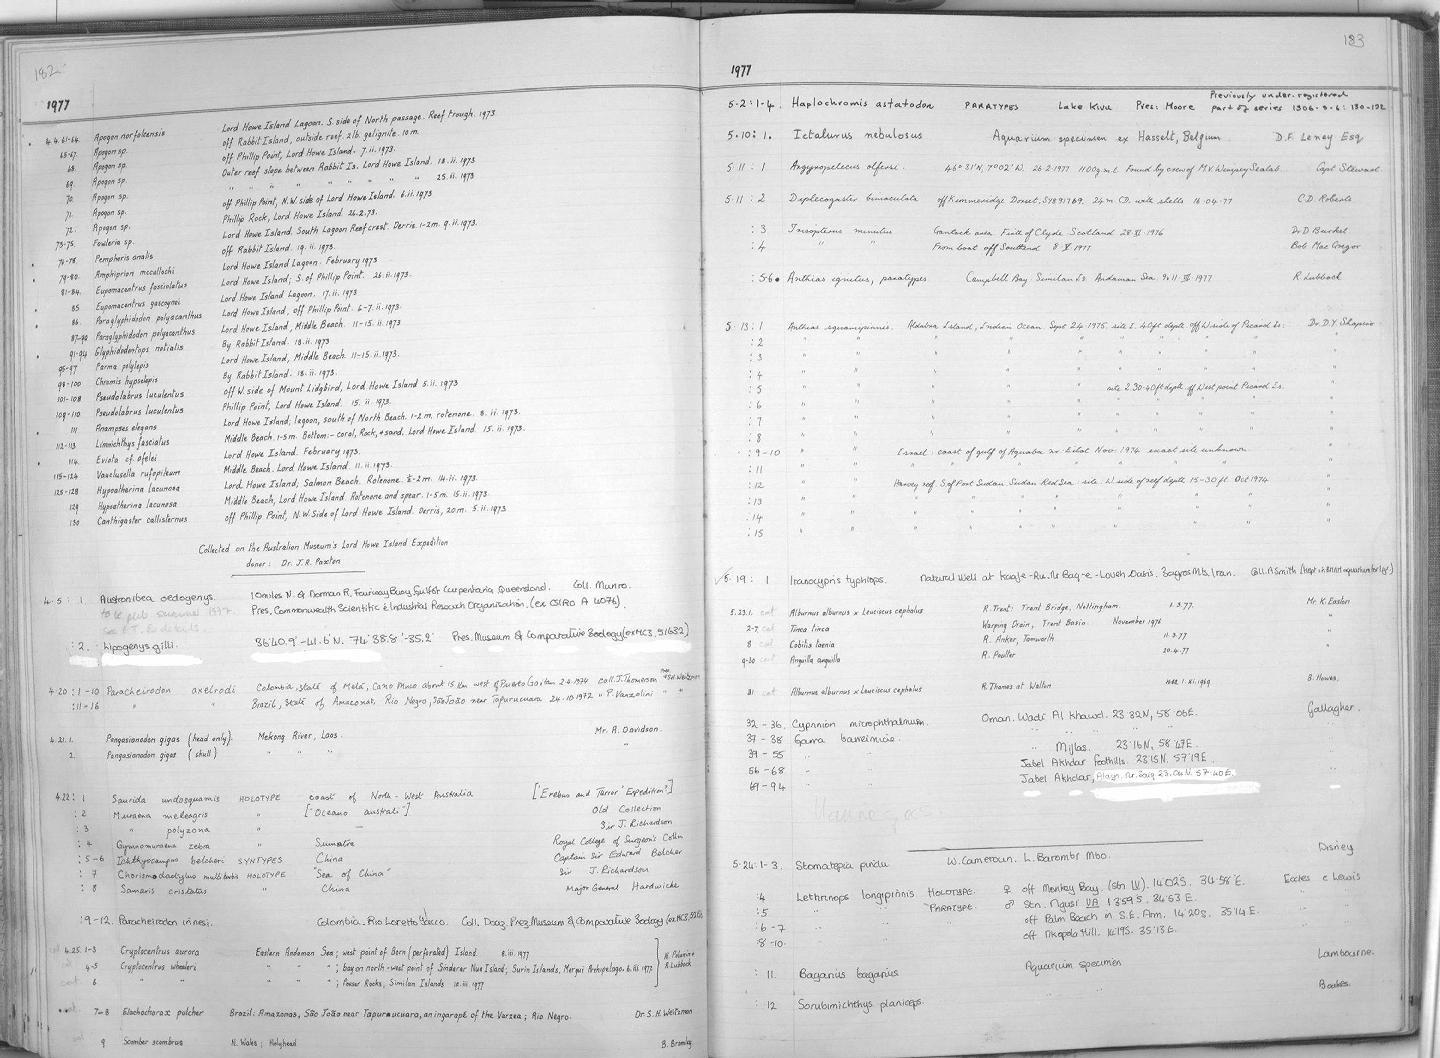 182
1977
4.4.61-64. Apogon norfolcensis Lord Howe Island Lagoon. S. side of North passage. Reef trough. 1973
65-67. Apogon sp. off Rabbit Island, outside reef. 2lb. gelignite. 10m.
68. Apogon sp. off Phillip Point, Lord Howe Island. 7.ii.1973.
69. Apogon sp. Outer reef slope between Rabbit Is. Lord Howe Island. 18.ii.1973
70. Apogon sp. " " " " " " " " 25.ii.1973
71. Apogon sp. off Phillip Point, N.W. side of Lord Howe Island. 6.ii.1973
72. Apogon sp. Phillip Rock, Lord Howe Island. 26.2.73.
73-75. Fowleria sp. Lord Howe Island. South Lagoon Reef crest. Derris. 1-2m. 9.ii.1973.
76-78. Pempheris analis off Rabbit Island. 19.ii.1973.
79-80. Amphiprion mccullochi Lord Howe Island Lagoon. February 1973
81-84. Eupomacentrus fasciolatus Lord Howe Island; S. of Phillip Point. 26.ii.1973.
85 Eupomacentrus gascoynei Lord Howe Island Lagoon. 17.ii.1973
86. Paraglyphidodon polyacanthus Lord Howe Island, off Phillip Point. 6-7.ii.1973.
87-90 Paraglyphidodon polyacanthus Lord Howe Island, Middle Beach. 11-15.ii.1973
91-94 Glyphidodontops notialis By Rabbit Island. 18.ii.1973
95-97 Parma polylepis Lord Howe Island, Middle Beach. 11-15.ii.1973.
98-100 Chromis hypsilepis By Rabbit Island. 18.ii.1973.
101-108 Pseudolabrus luculentus off W. side of Mount Lidgbird, Lord Howe Island 5.ii.1973
109-110 Pseudolabrus luculentus Phillip Point, Lord Howe Island. 15.ii.1973.
111 Anampses elegans Lord Howe Island; lagoon, south of North Beach. 1-2m. rotenone. 8.ii.1973.
112-113 Limnichthys fasciatus Middle Beach. 1-5m. Bottom:- coral, Rock, + sand. Lord Howe Island. 15.ii.1973.
114. Eviota cf. afelei Lord Howe Island. February 1973.
115-124 Vauclusella rufopileum Middle Beach. Lord Howe Island. 11.ii.1973.
125-128 Hypoatherina lacunosa Lord Howe Island; Salmon Beach. Rotenone. ½-2m. 14.ii.1973.
129 Hypoatherina lacunosa Middle Beach, Lord Howe Island. Rotenone and spear. 1-5m. 15.ii.1973.
130 Canthigaster callisternus off Phillip Point, N.W. Side of Lord Howe Island. Derris, 20m. 5.ii.1973
Collected on the Australian Museum's Lord Howe Island Expedition
donor: Dr. J.R. Paxton
4.5: 1. Austronibea oedogenys. 10miles N. of Norman R. Fairway Buoy, Gulf of Carpentaria, Queensland. Coll. Munro.
Pres. Commonwealth Scientific & Industrial Research Organisation. (ex CSIRO A 4076).
: 2. Lipogenys gilli. 36°40.9'-41.6'N. 74°38.8'-35.2' Pres. Museum of Comparative Zoology (ex MCZ, 51632)
4.20: 1-10 Paracheirodon axelrodi Colombia, State of Meta, Cano Muco about 15 Km west of Puerto Gaitan 2.4.1974 coll. J. Thomerson Pres. S.H. Weitzman
: 11-16 " " Brazil, State of Amazonas, Rio Negro, São João near Tapurucuara 24.10.1972 " P. Vanzolini " "
4.21.1. Pangasianodon gigas (head only). Mekong River, Laos. Mr. A. Davidson.
2. Pangasianodon gigas (skull) " " " "
4.22: 1 Saurida undosquamis HOLOTYPE coast of North-West Australia ["Erebus and Terror" Expedition?]
: 2 Muraena meleagris " ["Oceano australi"] Old Collection
: 3 " polyzona " — Sir J. Richardson
: 4 Gymnomuraena zebra " Sumatra Royal College of Surgeon's Colln
: 5-6 Ichthyocampus belcheri SYNTYPES China Captain Sir Edward Belcher
: 7 Chorismodactylus multibarbis HOLOTYPE "Sea of China" Sir J. Richardson
: 8 Samaris cristatus " China Major General Hardwicke
: 9-12. Paracheirodon innesi. Colombia. Rio Loreto Yacco. Coll. Pres. Museum of Comparative Zoology
4.25. 1-3 Cryptocentrus aurora Eastern Andaman Sea; west point of Born (perforated) Island. 8.iii.1977
4-5 Cryptocentrus wheeleri " " "; bay on north-west point of Sinderer Nue Island; Surin Islands, Mergui Archipelago. 6.iii.1977 N. Polunin & R. Lubbock
6 " " " " "; Poxser Rocks, Similan Islands 10.iii.1977
7-8 Elachocharax pulcher Brazil: Amazonas, São João near Tapurucuara, an ingarapé of the Varzea; Rio Negro. Dr. S.H. Weitzman
9 Scomber scombrus N. Wales; Holyhead B. Bromley
183
1977
5.2: 1-4. Haplochromis astatodon PARATYPES Lake Kivu Pres: Moore Previously under-registered part of series 1906.9.6: 130-132
5.10: 1. Ictalurus nebulosus Aquarium specimen ex Hasselt, Belgium. D.F. Leney Esq
5.11: 1 Argyropelecus olfersi. 46°31'N, 7°02'W. 26.2.1977 Found by crew of M.V. Capt Steward
5.11: 2 Diplecogaster bimaculata off Kimmeridge Dorset, SY891769. 24m C.D. with shells 16.04.77 C.D. Roberts
: 3 Trisopterus minutus Gantock area Firth of Clyde, Scotland 28.XI.1976 Dr D Burkel
: 4 " " From boat off Southend 8.V.1977 Bob MacGregor
: 5-6 Anthias ignitus, paratypes. Campbell Bay. Similan Is. Andaman Sea. 1977 R. Lubbock
5.13: 1 Anthias squamipinnis. Aldabra Island, Indian Ocean Sept 24 1975. site 1. 40ft depth. off W side of Picard Is: Dr. D.Y. Shapiro
: 2 " " " " " " " " "
: 3 " " " " " " " " "
: 4 " " " " " " " " "
: 5 " " " " " site 2. 30-40ft depth. off West point Picard Is. "
: 6 " " " " " " " " "
: 7 " " " " " " " " "
: 8 " " " " " " " " "
: 9-10 " " Israel: coast of gulf of Aquaba nr Eilat Nov. 1974 exact site unknown. "
: 11 " " " " " " " " "
: 12 " " Harvey reef S. of Port Sudan Sudan Red Sea. site. W. side of reef depth 15-30 ft. Oct 1974 "
: 13 " " " " " " " " "
: 14 " " " " " " " " "
: 15 " " " " " " " " "
5.19: 1 Iranocypris typhlops. Natural Well at Kaaje-Ru. Nr Baq-e-Loveh Oasis. Zagros Mts, Iran. Coll. A Smith (kept in BMNH aquarium
5.23.1. cat Alburnus alburnus x Leuciscus cephalus R. Trent: Trent Bridge, Nottingham. 1.3.77. Mr. K. Easton
2-7 cat Tinca tinca Warping Drain, Trent Basin. November 1976 "
8 cat Cobitis taenia R. Anker, Tamworth 11.3.77 "
9-30 cat Anguilla anguilla R. Poulter 20.4.77 "
31 cat Alburnus alburnus x Leuciscus cephalus R. Thames at Walton 1.XI.1969 B. Howes.
32-36. Cyprinion microphthalmum. Oman. Wadi Al Khawd. 23°32N, 58°06E. Gallagher.
37-38 Garra barreimiae. " " " " " "
39-55 " " Mijlas. 23°16N, 58°47E. "
56-68 " Jabel Akhdar foothills. 23°15N. 57°19E. "
69-94 " Jabel Akhdar, Nr. Saiq 23.04N. 57.40E. "
5.24: 1-3. Stomatepia pindu W. Cameroun. L. Barombi Mbo. Disney
: 4 Lethrinops longipinnis HOLOTYPE. ♀ off Monkey Bay. (stn IV). 14°02S. 34°58'E. Eccles & Lewis
: 5 " " PARATYPE. ♂ Stn. Ngusi VA 13°59S. 34°53E. " "
: 6-7 " " off Palm Beach in S.E. Arm. 14°20S. 35°14E. " "
: 8-10. " " off Nkopola Hill. 14°19S. 35°13E.
: 11. Bagarius bagarius Aquarium specimen Lambourne.
: 12 Sorubimichthys planiceps. " " Boakes.